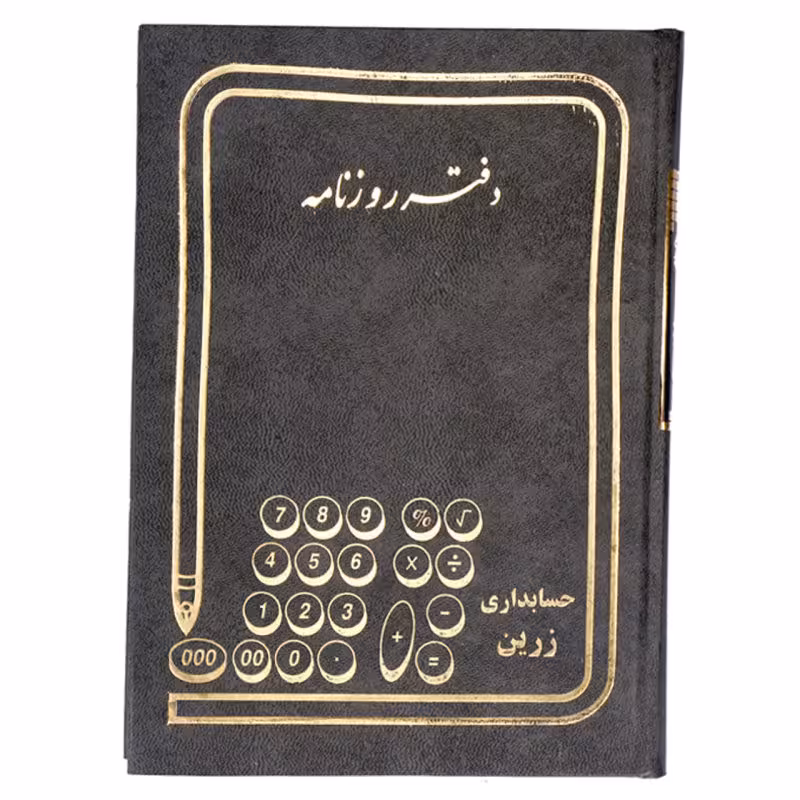 دفتر روزنامه
7 8 9 % √
4 5 6 × ÷
1 2 3 + -
000 00 0 . =
حسابداری
زرین